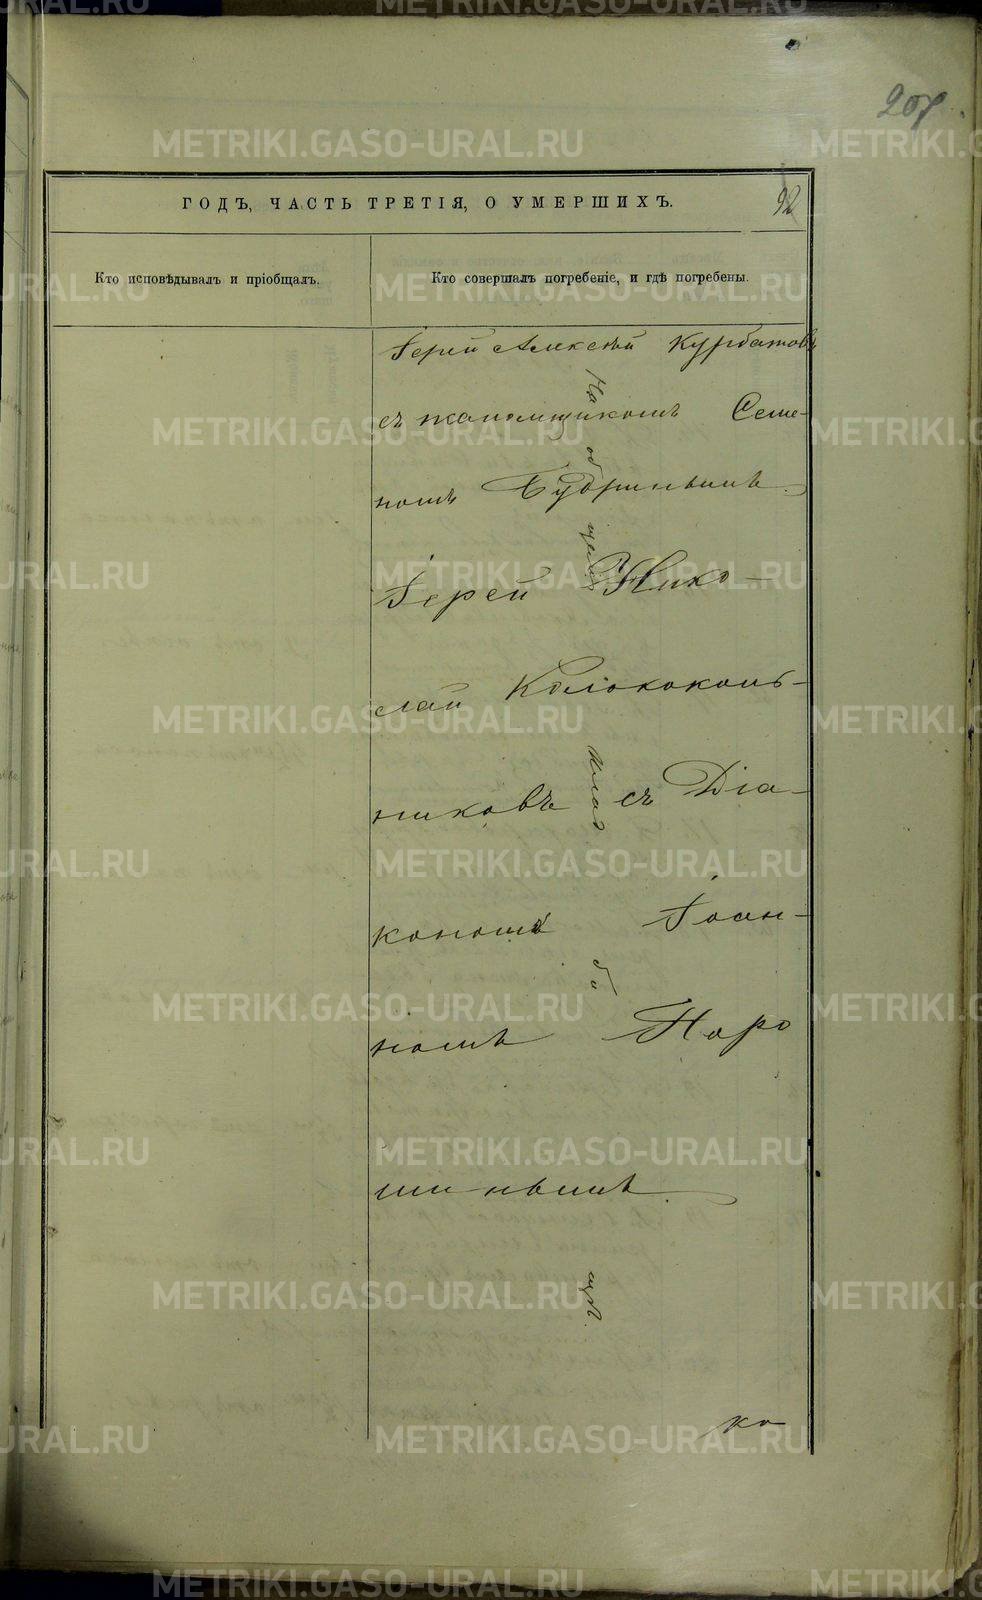 207
ГОДЪ, ЧАСТЬ ТРЕТІЯ, О УМЕРШИХЪ.
92
Кто исповѣдывалъ и пріобщалъ.
Кто совершалъ погребеніе, и гдѣ погребены.
Іерей Алексѣй Курбатовъ
съ псаломщикомъ Семе-
номъ Будринымъ.
Іерей Нико-
лай Колокольъ-
никовъ съ Діа-
кономъ Іоан-
номъ Поро
шинымъ.
На общемъ кладбищѣ.
ко
METRIKI.GASO-URAL.RU